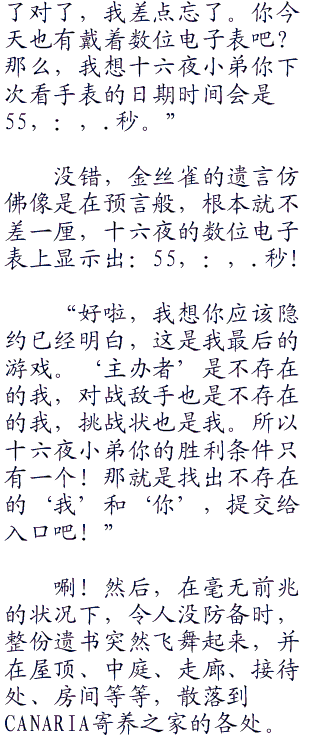 了对了，我差点忘了。你今
天也有戴着数位电子表吧？
那么，我想十六夜小弟你下
次看手表的日期时间会是
55，：，.秒。”
没错，金丝雀的遗言仿
佛像是在预言般，根本就不
差一厘，十六夜的数位电子
表上显示出：55，：，.秒！
“好啦，我想你应该隐
约已经明白，这是我最后的
游戏。‘主办者’是不存在
的我，对战敌手也是不存在
的我，挑战状也是我。所以
十六夜小弟你的胜利条件只
有一个！那就是找出不存在
的‘我’和‘你’，提交给
入口吧！”
唰！然后，在毫无前兆
的状况下，令人没防备时，
整份遗书突然飞舞起来，并
在屋顶、中庭、走廊、接待
处、房间等等，散落到
CANARIA寄养之家的各处。